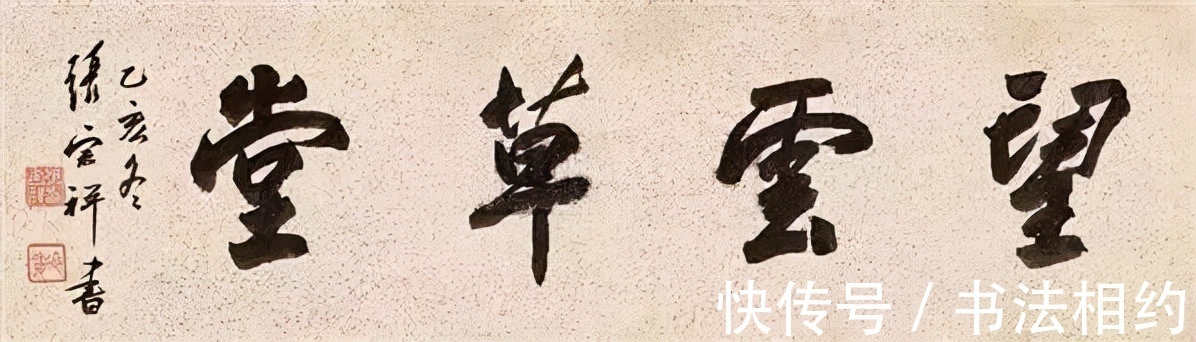 望雲草堂
乙亥冬
張宗祥書
快传号 / 书法相约